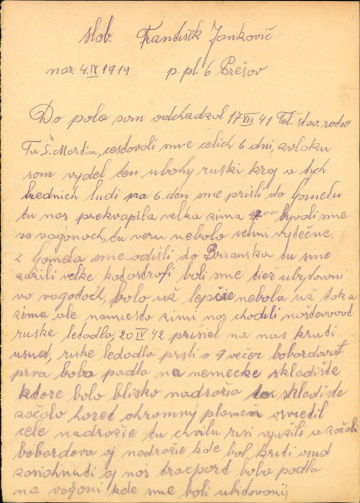 slob. František Jankovič
nar 4.IX 1919 p.pl 6 Prešov
Do pola som odchádzal 17 VII 41
Tu S. Martin, cestovali sme celich 6 dni, z vlaku
som vydel ten ubohy ruski kraj a tych
bednich ludi na 6 den sme prišli do Gomelu
tu nas prekvapila velka zima byvali sme
vo vagonoch, tu veru nebolo velmi vytečne.
z Gomela sme odišli do Brianska tu sme
zažili velke boli sme tiež ubytovani
vo vagonoch, bolo už lepšie nebola už taka
zima ale namiesto zimi nas chodili
ruske letadla, 20 IV 42 prišiel na nas kruti
osud, ruske letadla prišli o 9 večer bobardovat
prva boba padla na nemecke skladište
ktore bolo blisko nadražia to skladište
začalo horet ohromny plamen svietil
cele nadražie tu chvilu rusi využili a začali
bobardova aj nadražie kde bol kruti osud
zasiahnuti aj naš tracport boba padla
na vagoni kde sme boli ubitovani